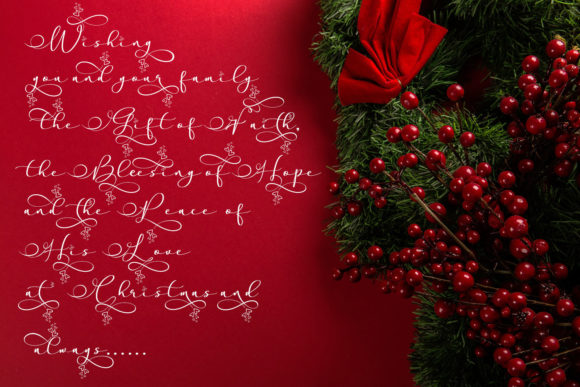 Wishing
you and your family
the Gift of Faith,
the Bleesing of Hope
and the Peace of
His Love
at Christmas and
always......